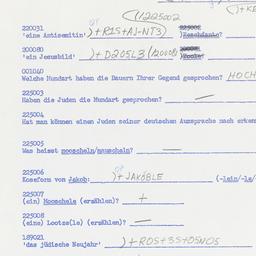 (1225002
)+KE
220031
'eine Antisemitin' )+R1S+AJ-NT3)
200080
'ein Jesusbild' )+D205L3(120008)
001040
Welche Mundart haben die Bauern Ihrer Gegend gesprochen? HOCH
225003
Haben die Juden die Mundart gesprochen? —
225004
Hat man können einen Juden seiner deutschen Aussprache nach erken
225005
Was heisst mooscheln/mauscheln? —
225006
Koseform von Jakob: )+JAKÖBLE (-lein/-le/
225007
(ein) Mooschele (erzählen)? +
225008
(eine) Lootze(le) (erzählen)? —
189021
'das jüdische Neujahr' )+RO5+35+O5NO5